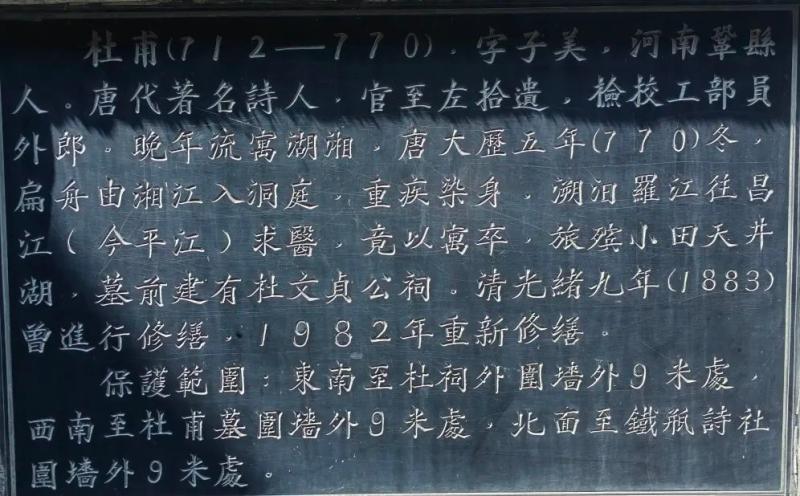 杜甫(712—770)，字子美，河南鞏縣
人。唐代著名詩人，官至左拾遺，檢校工部員
外郎。晚年流寓湖湘，唐大歷五年(770)冬，
扁舟由湘江入洞庭，重疾染身，溯汨羅江往昌
江(今平江)求醫，竟以寓卒，旅殯小田天井
湖，墓前建有杜文貞公祠。清光緒九年(1883)
曾進行修缮，1982年重新修缮。
保護範圍：東南至杜祠外圍墻外9米處，
西南至杜甫墓圍墻外9米處，北面至鐵瓶詩社
圍墻外9米處。